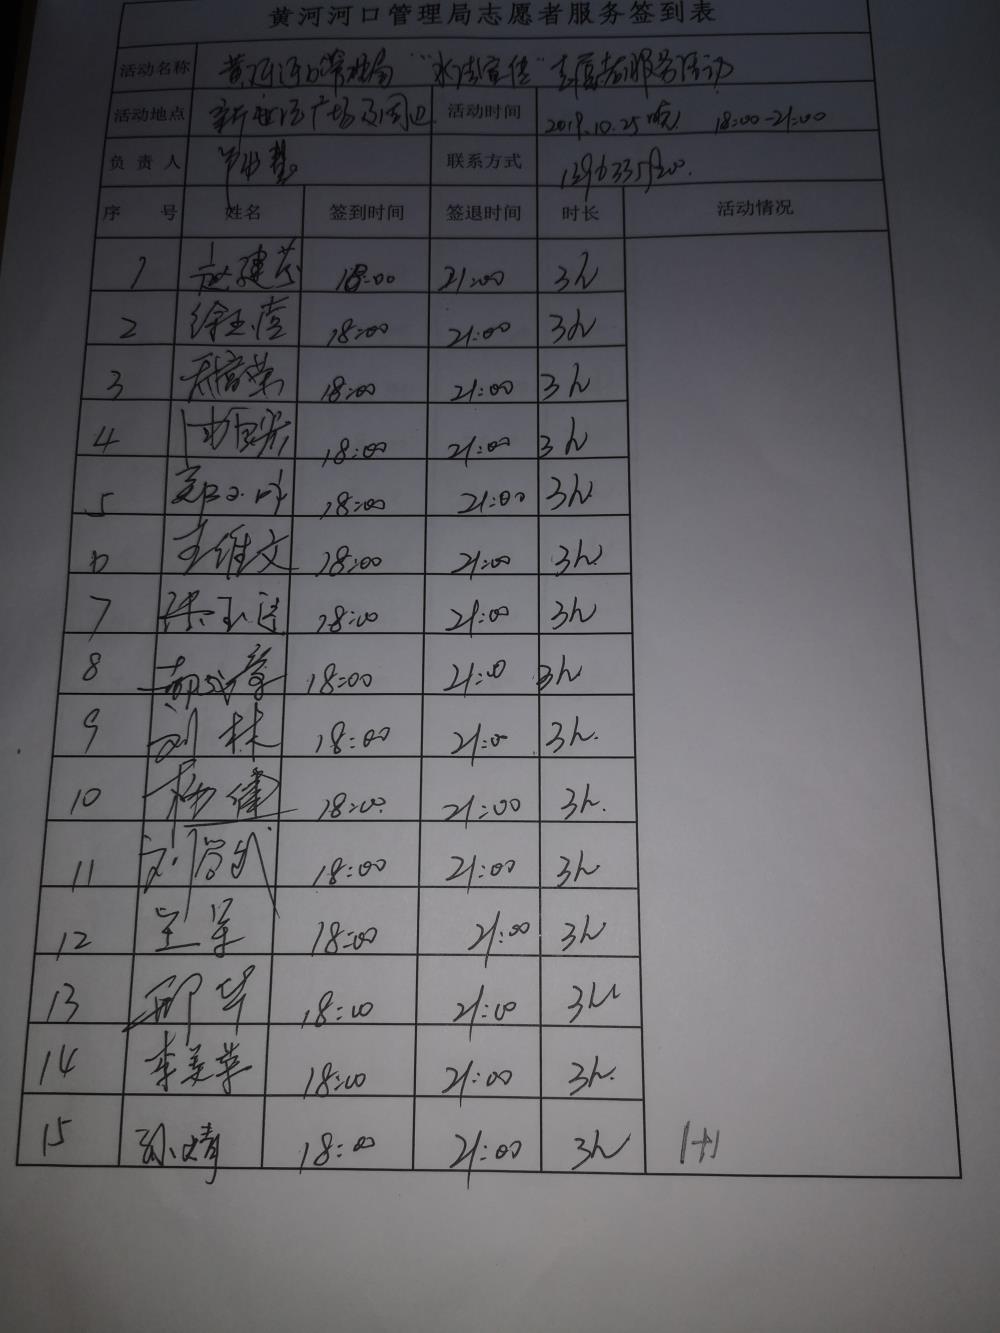 黄河河口管理局志愿者服务签到表
活动名称 黄河河口管理局“水法宣传”志愿者服务活动
活动地点 广场及周边 活动时间 2019.10.25晚 18:00-21:00
负责人 联系方式
序号 姓名 签到时间 签退时间 时长 活动情况
1 赵建 18:00 21:00 3h
2 徐玉 18:00 21:00 3h
3 18:00 21:00 3h
4 18:00 21:00 3h
5 18:00 21:00 3h
6 李维文 18:00 21:00 3h
7 张玉 18:00 21:00 3h
8 18:00 21:00 3h
9 刘林 18:00 21:00 3h.
10 杨健 18:00 21:00 3h.
11 18:00 21:00 3h
12 王军 18:00 21:00 3h
13 邢华 18:00 21:00 3h
14 李美华 18:00 21:00 3h.
15 孙靖 18:00 21:00 3h 1+1